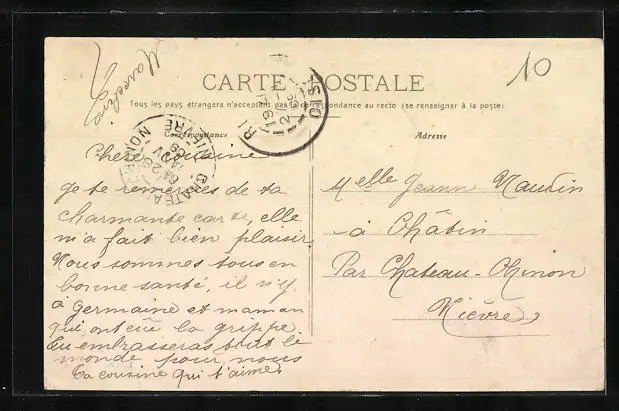 Marceline
10
CARTE POSTALE
Tous les pays étrangers n'acceptent pas la correspondance au recto (se renseigner à la poste)
Correspondance
Adresse
Chère Cousine
Je te remercies de ta
charmante carte, elle
m'a fait bien plaisir.
Nous sommes tous en
bonne santé, il n'y
à Germaine et maman
qui ont eüe la grippe.
Tu embrasseras tout le
monde pour nous
Ta cousine qui t'aime.
Melle Jeanne Naudin
à Châtin
Par Chateau-Chinon
Nièvre
CHATEAU-CHINON
NIEVRE